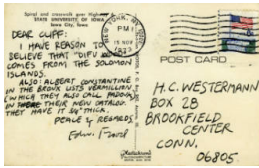 Spiral and crosswalk over Highway
STATE UNIVERSITY OF IOWA
Iowa City, Iowa
DEAR CLIFF:
I HAVE REASON TO
BELIEVE THAT "DIFU
COMES FROM THE SOLOMON
ISLANDS.
ALSO: ALBERT CONSTANTINE
IN THE BRONX LISTS VERMILLION
(WHICH THEY ALSO CALL PADOUK)
IN THEIR NEW CATALOG.
THEY HAVE IT 3/4" THICK.
PEACE & REGARDS
NEW YORK, N.Y.
PM
15 NOV
1972
POST CARD
H.C. WESTERMANN
BOX 28
BROOKFIELD
CENTER
CONN.
06805